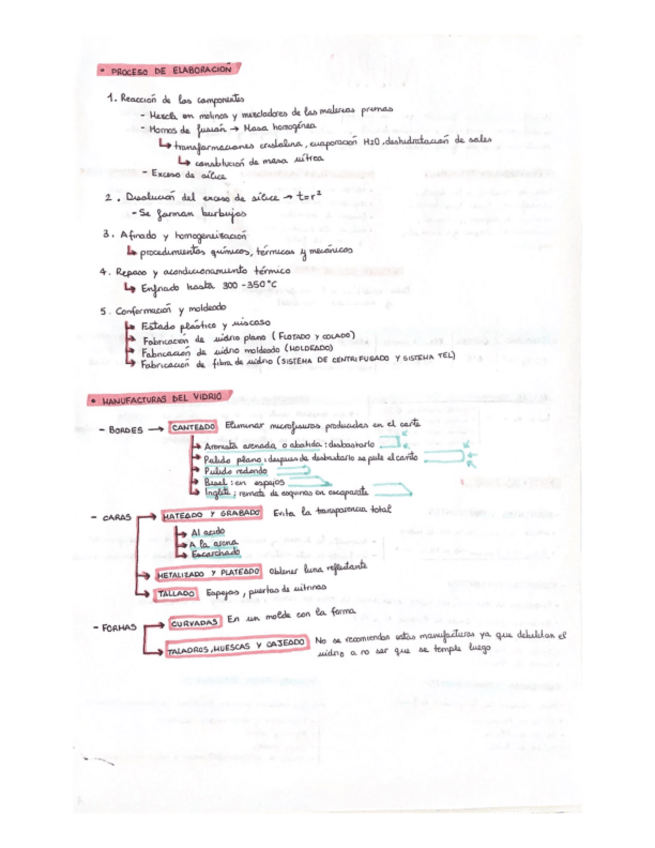 • PROCESO DE ELABORACIÓN
1. Reacción de los componentes
- Mezcla en molinos y mezcladores de las materias primas
- Hornos de fusión → Masa homogénea
↳ transformaciones cristalina, evaporación H2O, deshidratación de sales
↳ constitución de masa vítrea
- Exceso de sílice
2. Disolución del exceso de sílice → t=r²
- Se forman burbujas
3. Afinado y homogeneización
↳ procedimientos químicos, térmicos y mecánicos
4. Reposo y acondicionamiento térmico
↳ Enfriado hasta 300-350°C
5. Conformación y moldeado
↳ Estado plástico y viscoso
↳ Fabricación de vidrio plano (FLOTADO Y COLADO)
↳ Fabricación de vidrio moldeado (MOLDEADO)
↳ Fabricación de fibra de vidrio (SISTEMA DE CENTRIFUGADO Y SISTEMA TEL)
• MANUFACTURAS DEL VIDRIO
- BORDES → CANTEADO Eliminar microfisuras producidas en el corte
↳ Arenada o abatida: desbastarlo
↳ Pulido plano: despues de desbastarlo se pule el canto
↳ Pulido redondo
↳ Bisel: en espejos
↳ Inglete: remate de esquinas en escaparate
- CARAS → MATEADO Y GRABADO Evita la transparencia total
↳ Al acido
↳ A la arena
↳ Escarchado
→ METALIZADO Y PLATEADO Obtener luna reflectante
→ TALLADO Espejos, puertas de vitrinas
- FORMAS → CURVADAS En un molde con la forma
→ TALADROS, MUESCAS Y CAJEADO No se recomiendan estas manufacturas ya que debilitan el
vidrio a no ser que se temple luego